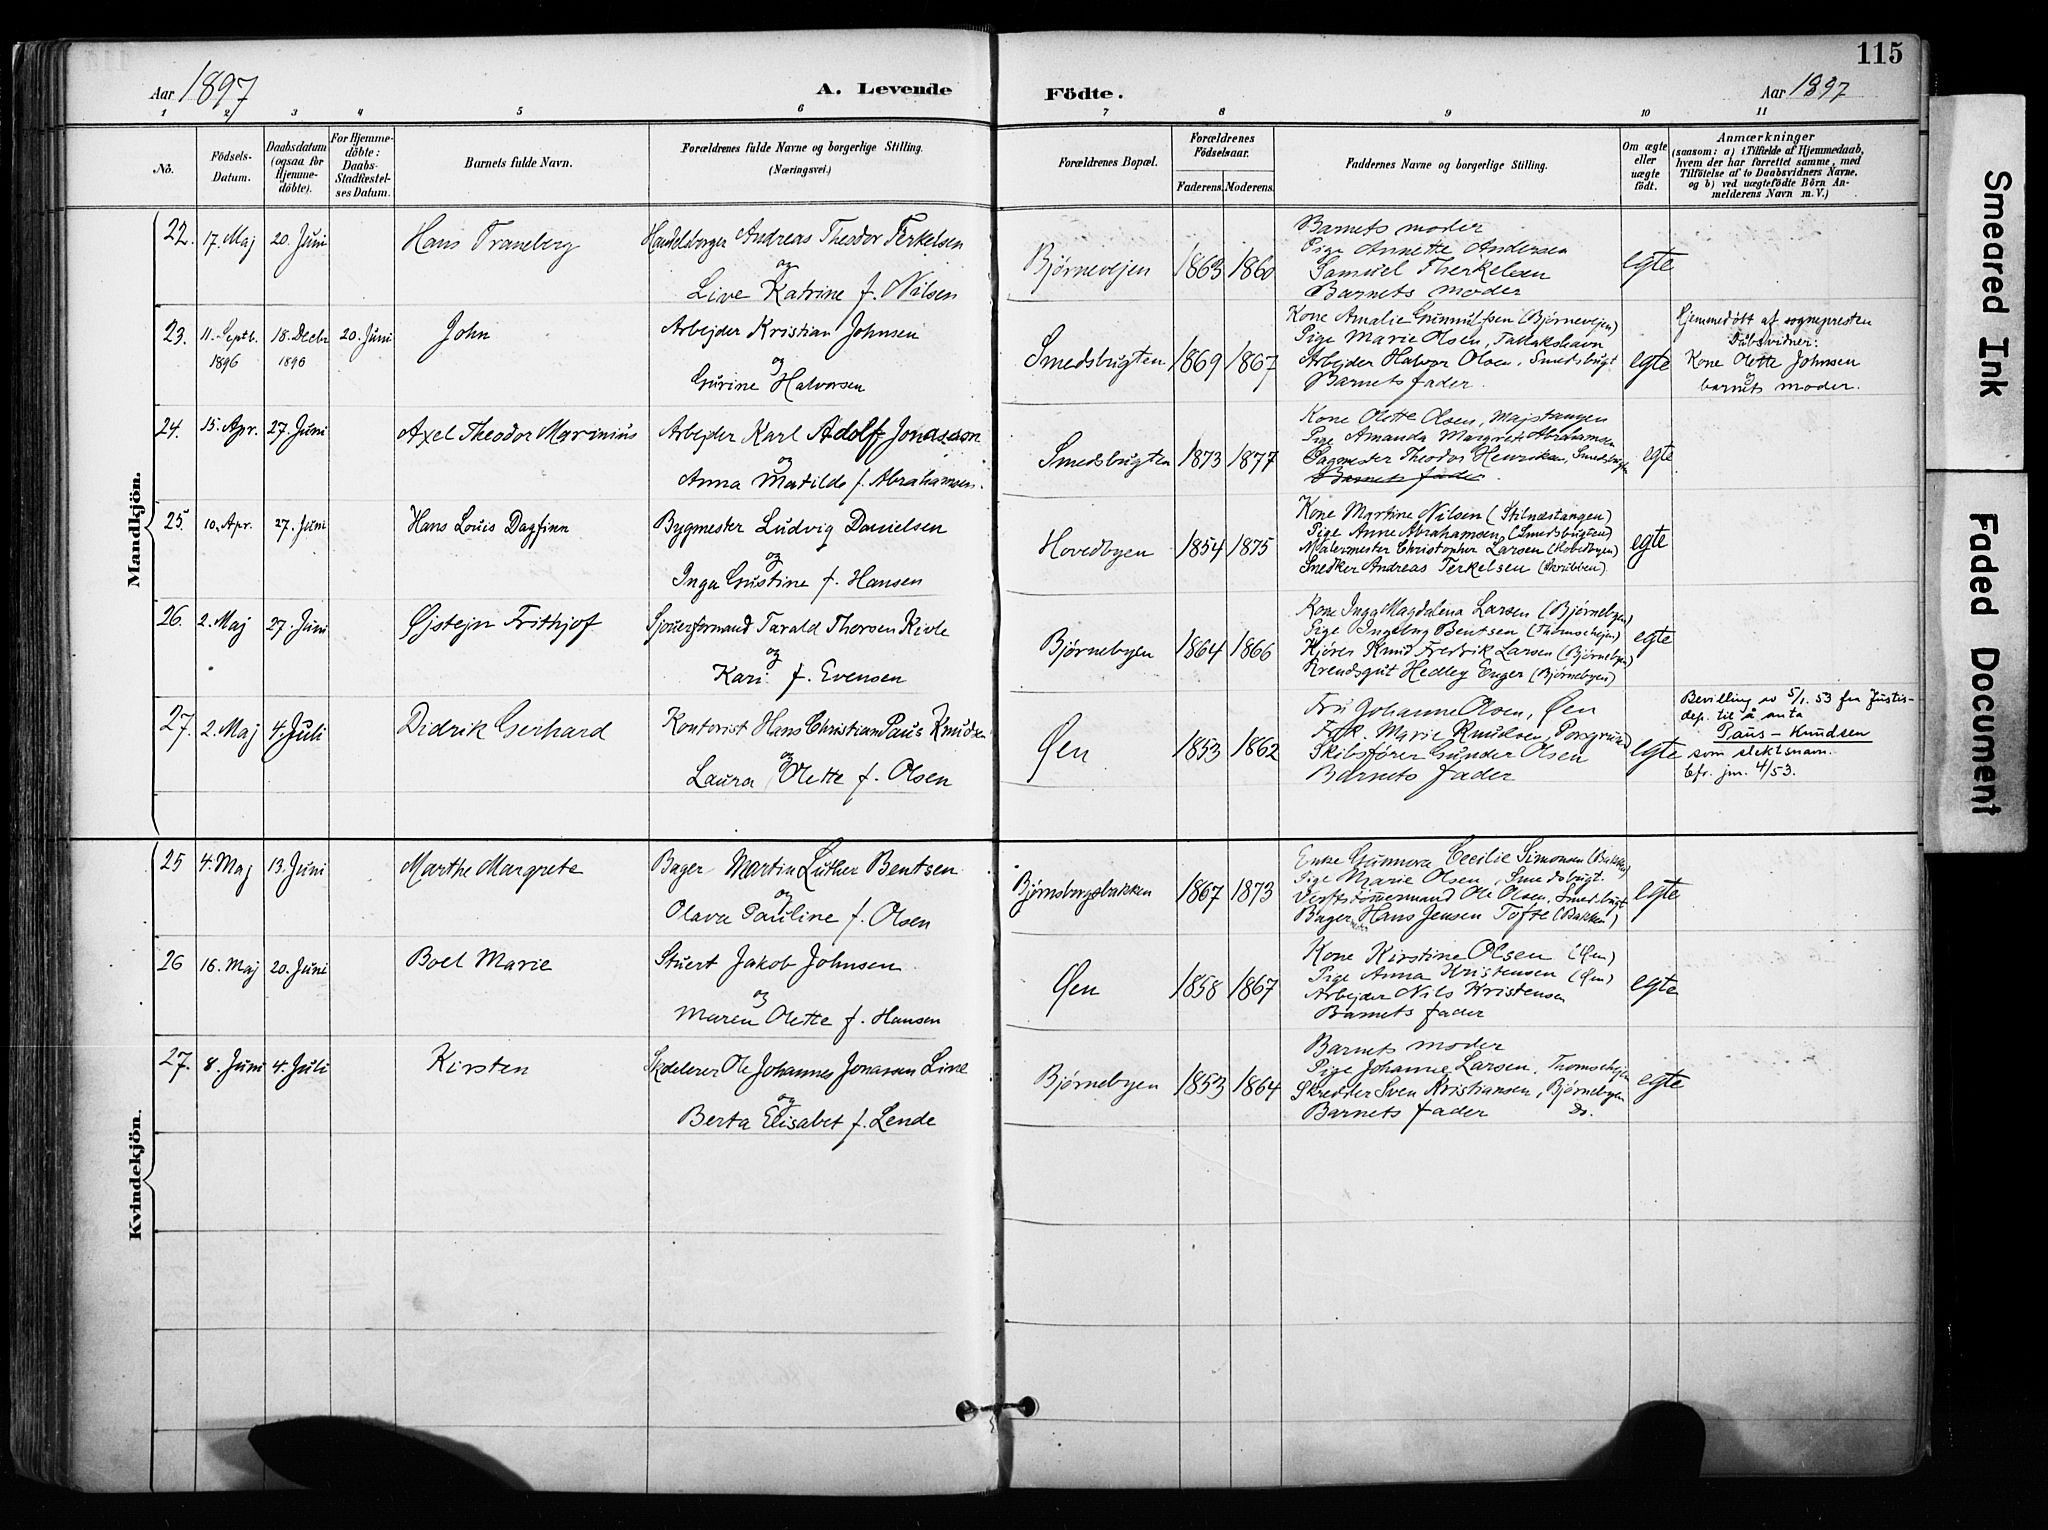 115
Aar 1897
A. Levende
Födte.
Aar 1897
1 2 3 4 5 6 7 8 9 10 11
No.
Födsels-
Datum.
Daabsdatum
(ogsaa for
Hjemme-
döbte).
For Hjemme-
döbte:
Daabs-
Stadfæstel-
ses Datum.
Barnets fulde Navn.
Forældrenes fulde Navne og borgerlige Stilling.
(Næringsvei.)
Forældrenes Bopæl.
Forældrenes
Födselsaar.
Faderens. Moderens.
Faddernes Navne og borgerlige Stilling.
Om ægte
eller
uægte
födt.
Anmærkninger
(saasom: a) i Tilfælde af Hjemmedaab,
hvem der har forrettet samme, med
Tilföielse af to Daabsvidners Navne,
og b) ved uægtefödte Börn An-
melderens Navn m. V.)
Mandkjön.
22. 17. Maj 20. Juni Hans Traneberg
Handelsborger Andreas Theodor Terkelsen
og
Live Katrine f. Nilsen
Bjørnevejen 1863 1860
Barnets moder
Pige Annette Andersen
Samuel Therkelsen
Barnets moder
egte
23. 11. Septb. 1896 18. Decbr 1896 20. Juni John
Arbejder Kristian Johnsen
og
Gurine Halvorsen
Smedsbugten 1869 1867
Kone Amalie Gunnulfsen (Bjørnevejen)
Pige Marie Olsen, Tallakshavn
Arbejder Halvor Olsen, Smedsbugt
Barnets fader
egte
Hjemmedøbt af sognepresten
Dåbsvidner:
Kone Olette Johnsen
og
barnets moder.
24. 15. Apr. 27. Juni Axel Theodor Marinius
Arbejder Karl Adolf Jonasson
og
Anna Matilde f. Abrahamsen.
Smedsbugten 1873 1877
Kone Olette Olsen, Majstangen
Pige Amanda Margrete Abrahamsen
Sagmester Theodor Henriksen, Smedsbugten
Barnets fader
egte
25 10. Apr. 27. Juni Hans Louis Dagfinn
Bygmester Ludvig Danielsen
og
Inga Gustine f. Hansen
Hovedbyen 1854 1875
Kone Martine Nilsen (Stilnæstangen)
Pige Anne Abrahamsen (Smedsbugten)
Malermester Christopher Larsen (Hovedbyen)
Snedker Andreas Terkelsen (Skrubben)
egte
26. 2. Maj 27. Juni Øjstejn Frithjof
Sjouerformand Tarald Thorsen Kivle
og
Kari f. Evensen
Bjørnebyen 1864 1866
Kone Inga Magdalena Larsen (Bjørnebyen)
Pige Ingeborg Bentsen (Thomschejen)
Kjører Knud Fredrik Larsen (Bjørnebyen)
Hedley Enger (Bjørnebyen)
egte
27. 2. Maj 4. Juli Didrik Gerhard
Kontorist Hans Christian Paus Knudsen
og
Laura Olette f. Olsen
Øen 1853 1862
Fru Johanne Olsen, Øen
Frk. Marie Knudsen, Porsgrund
Skibsfører Gunder Olsen
Barnets fader
egte
Bevilling av 5/1. 53 fra Justis-
dep. til å anta
Paus-Knudsen
som slektsnavn.
Cfr. jnr. 4/53.
Kvindekjön.
25 4. Maj 13. Juni Marthe Margrete
Bager Martin Luther Bentsen
og
Olava Pauline f. Olsen
Bjørnsborgsbakken 1867 1873
Enke Gunnora Cecilie Simonsen (Bakken)
Pige Marie Olsen, Smedsbugt.
Verftstømmermand Ole Olsen, Smedsbugt
Bager Hans Jensen Tofte (Bakken)
egte
26 16. Maj 20. Juni Boel Marie
Stuert Jakob Johnsen
og
Maren Olette f. Hansen
Øen 1858 1867
Kone Kirstine Olsen (Øen)
Pige Anna Kristensen (Øen)
Arbejder Nils Kristensen
Barnets fader
egte
27. 8. Juni 4. Juli Kirsten
Ole Johannes Jonassen Line
og
Berta Elisabet f. Lende
Bjørnebyen 1853 1864
Barnets moder
Pige Johanne Larsen, Thomschejen
Skredder Sven Kristiansen, Bjørnebyen
Barnets fader do.
egte
Smeared Ink
Faded Document